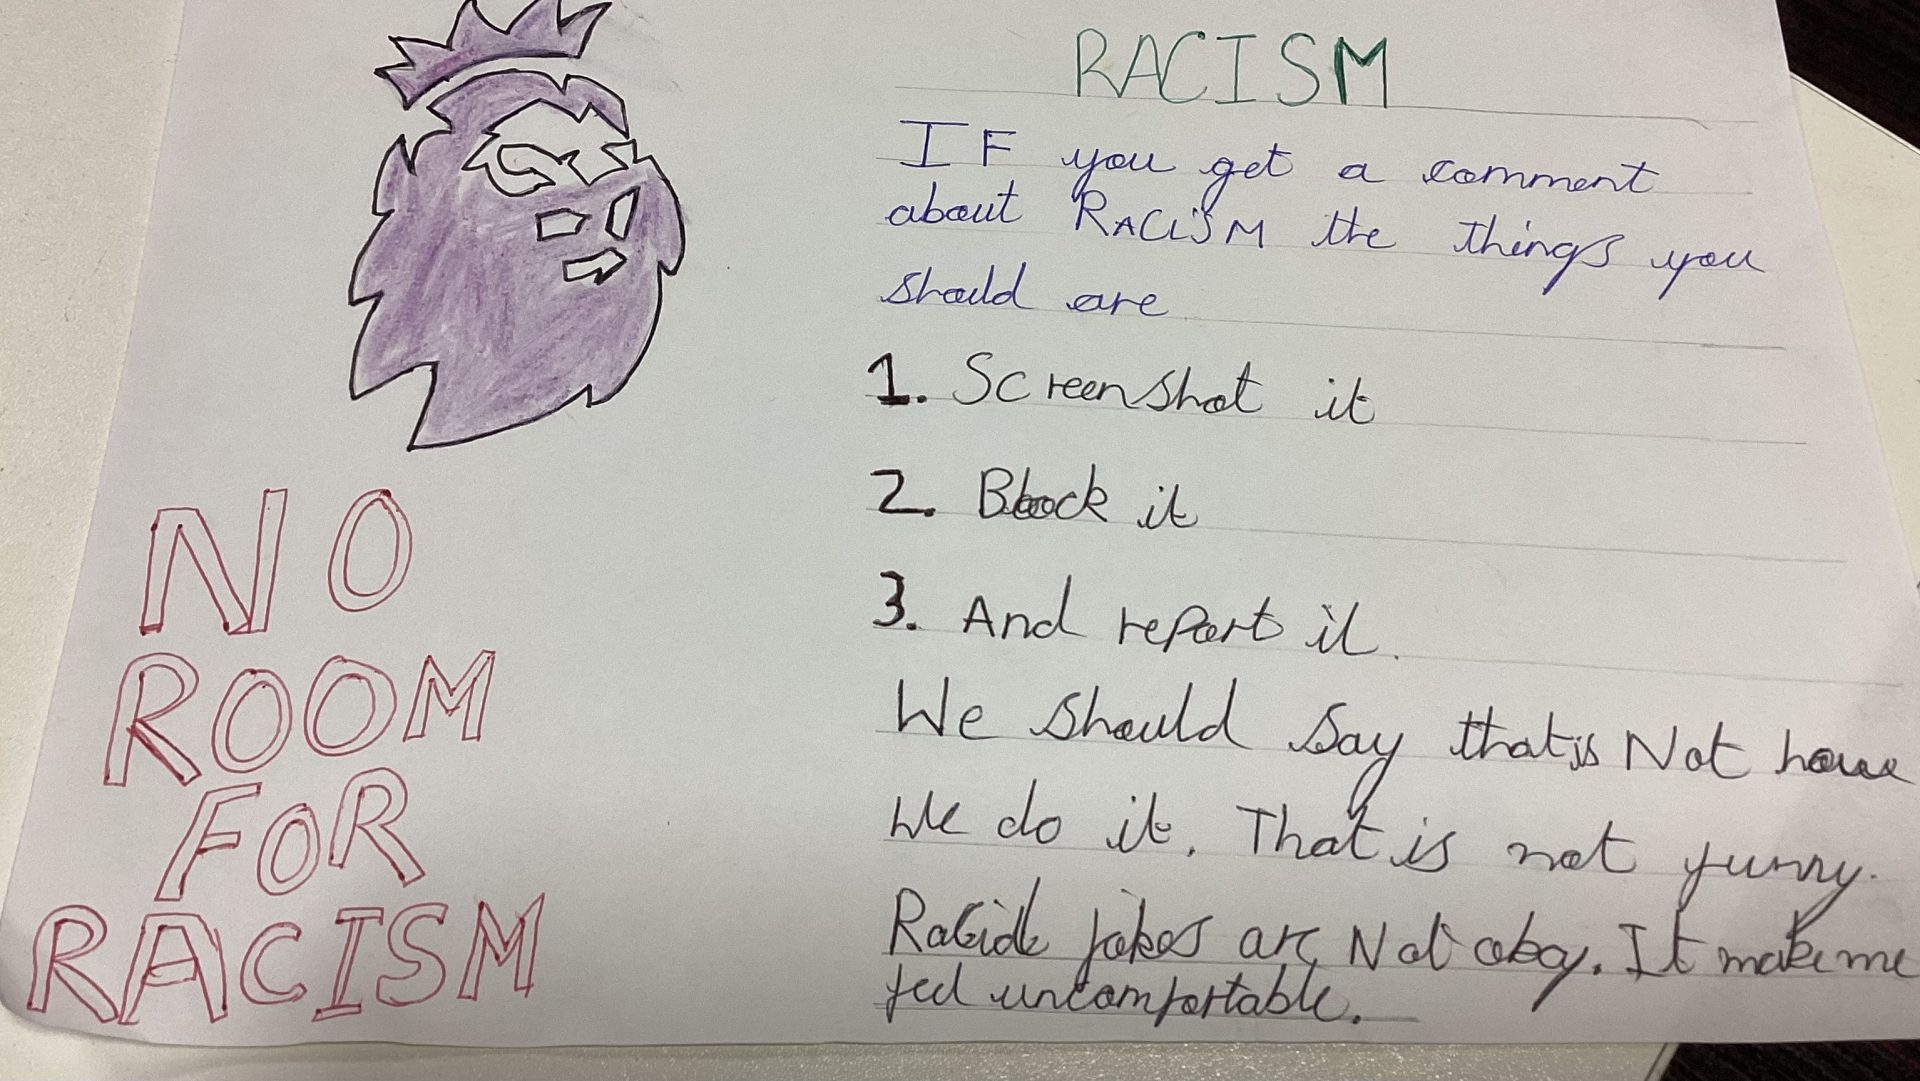 NO
ROOM
FOR
RACISM
RACISM
IF you get a comment
about RACiSM the things you
should are
1. Screenshot it
2. Block it
3. And report it.
We should say that is Not how
we do it. That is not funny.
jokes are Not okay. It make me
feel uncomfortable.